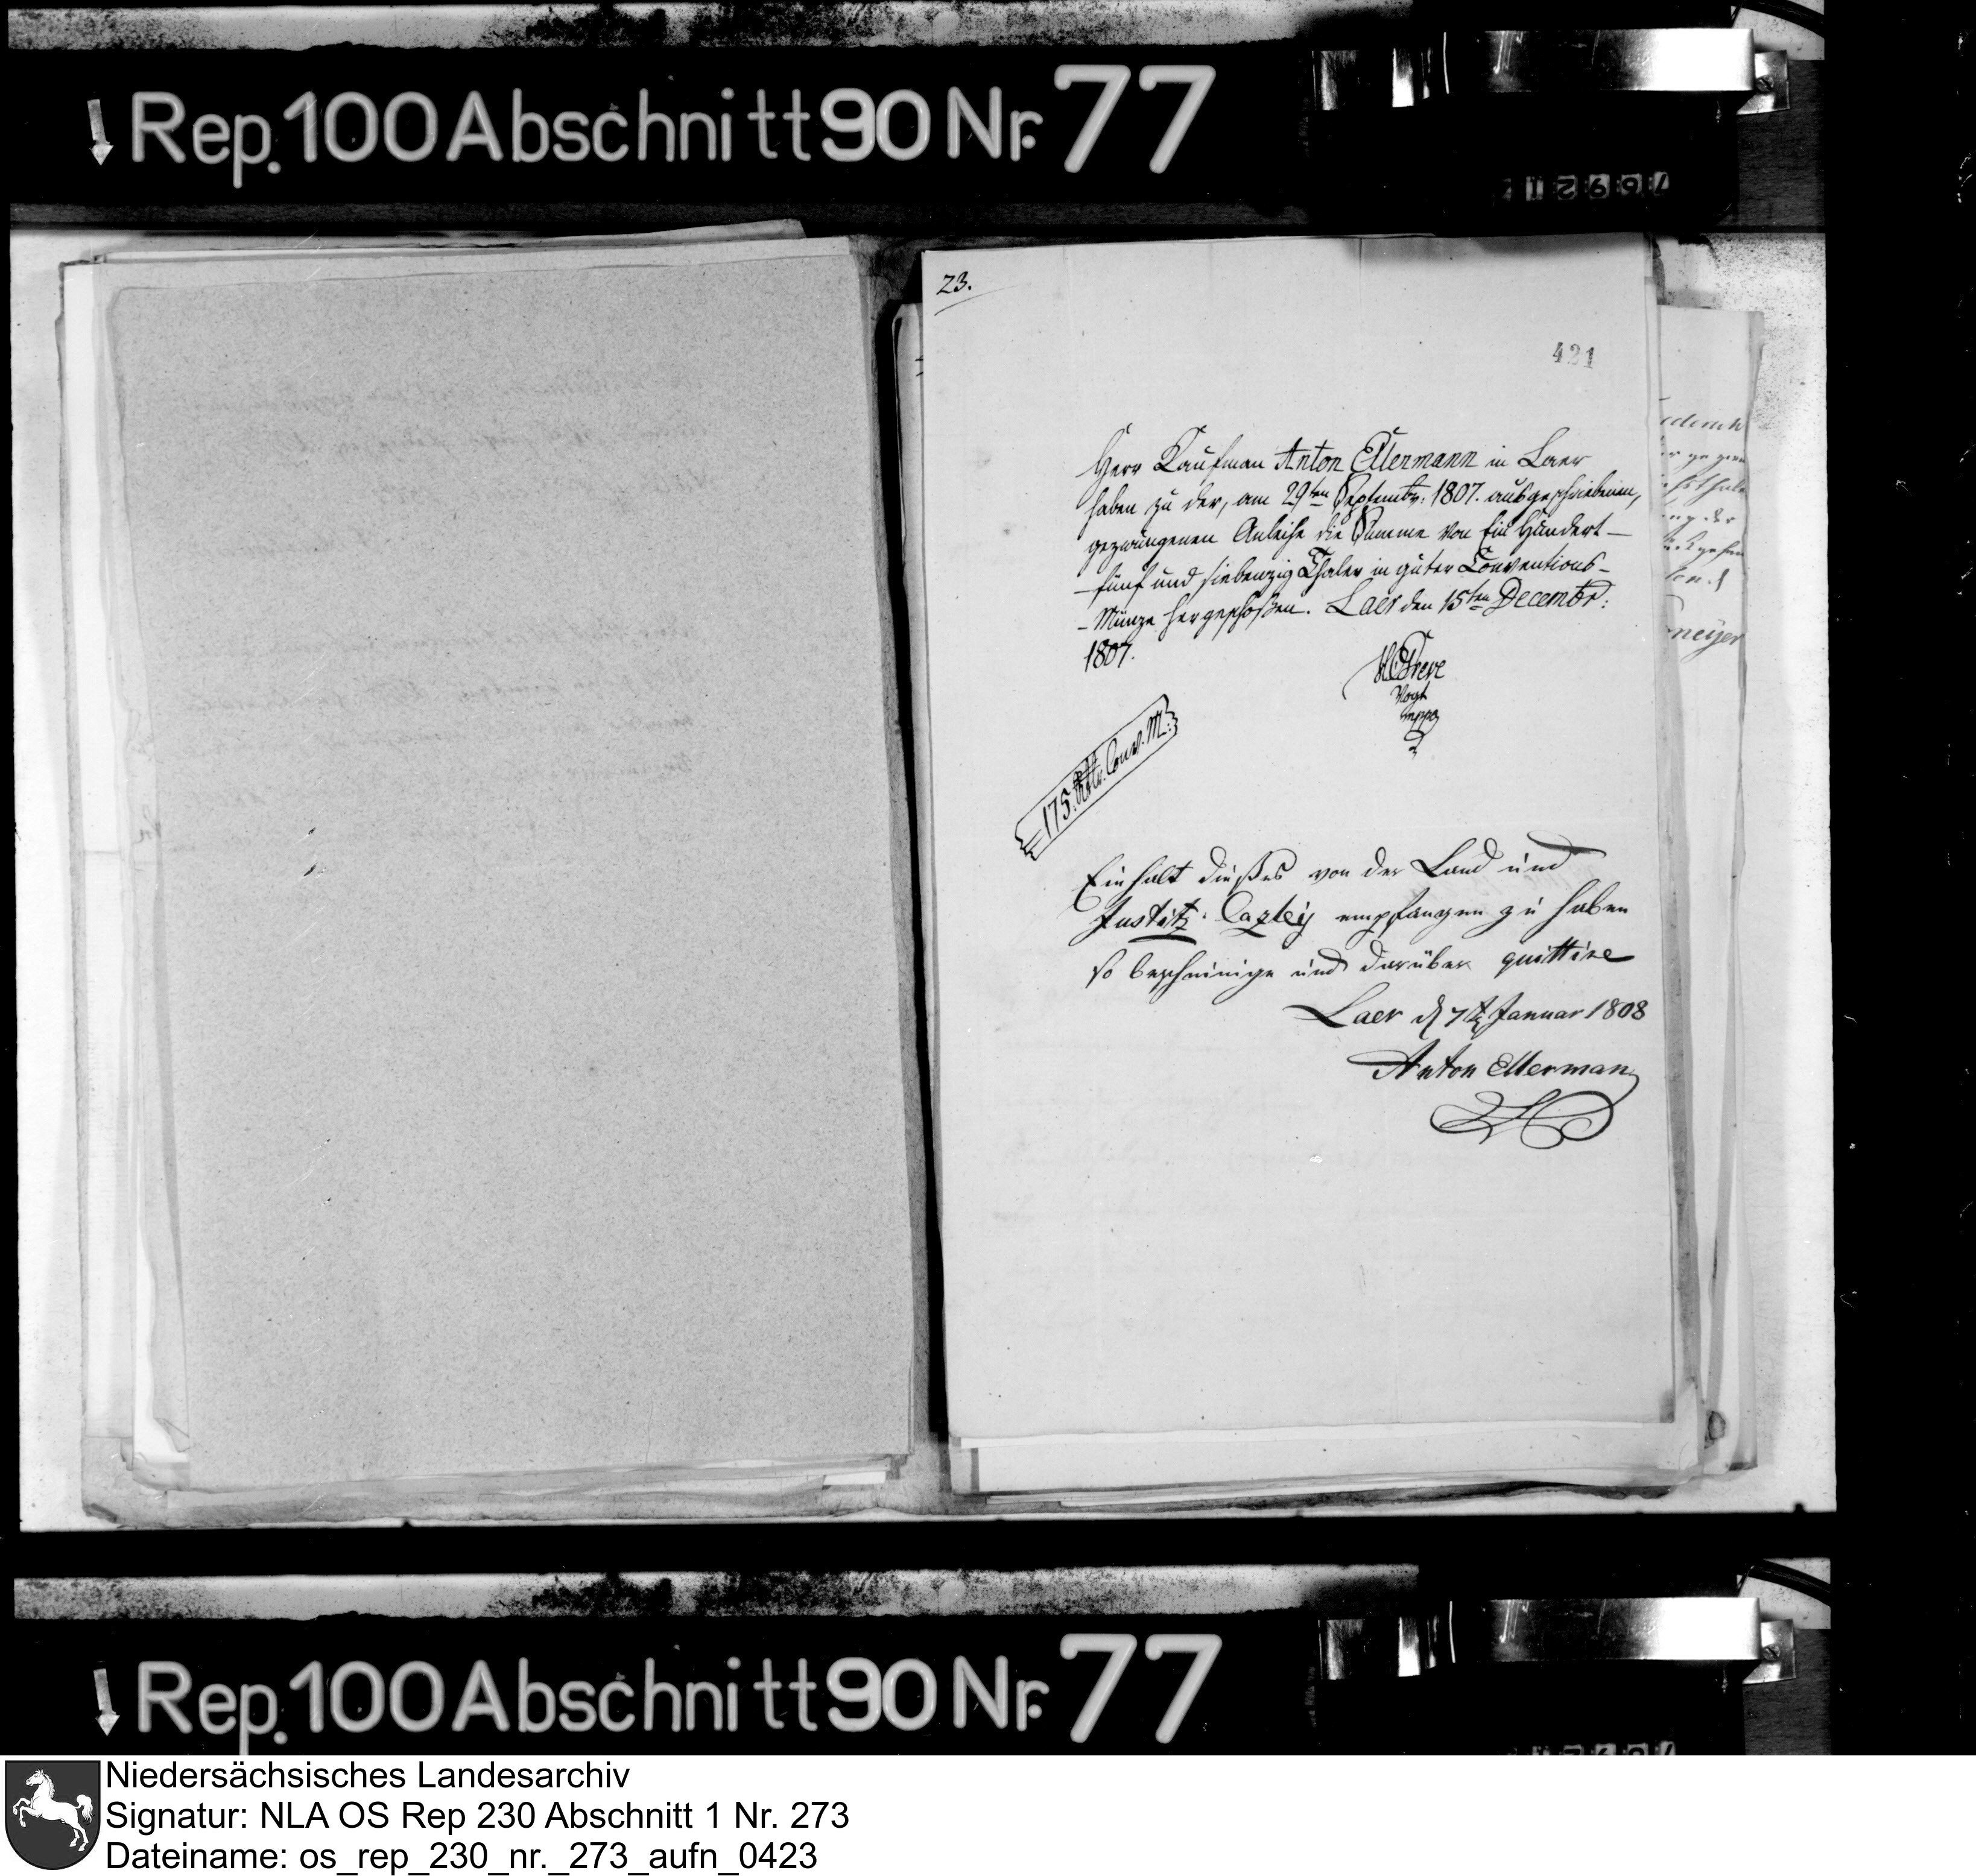 Rep. 100 Abschnitt 90 Nr. 77
23.
421
Herr Kaufman Anton Ellermann in Laer
haben zu der, am 29ten Septembr: 1807. ausgeschriebenen,
gezwungenen Anleihe die Summe von Ein Hundert –
– fünf und siebenzig Thaler in guter Conventions-
– Münze hergeschoßen. Laer den 15ten Decembr:
1807.
Vogt
mppa
175. Rthlr. Conv. M:
Einhalt dießes von der Land und
Justitz Cazley empfangen zu haben
so bescheinige und darüber quittire
Laer d 7t Januar 1808
Anton Ellerman
Rep. 100 Abschnitt 90 Nr. 77
Niedersächsisches Landesarchiv
Signatur: NLA OS Rep 230 Abschnitt 1 Nr. 273
Dateiname: os_rep_230_nr._273_aufn_0423